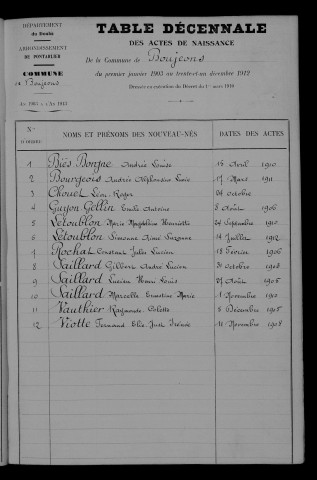 DÉPARTEMENT
du Doubs
ARRONDISSEMENT
DE PONTARLIER
COMMUNE
de Boujeons
An 1903 à l'An 1912
TABLE DÉCENNALE
DES ACTES DE NAISSANCE
De la Commune de Boujeons
du premier janvier 1903 au trente-et-un décembre 1912
Dressée en exécution du Décret du 1er mars 1910
Nos D'ORDRE NOMS ET PRÉNOMS DES NOUVEAU-NÉS DATES DES ACTES
1 Biès Bonzne Andrée Louise 16 Avril 1910
2 Bourgeois Andrée Alphonsine 17 Mars 1911
3 Chouet Léon Roger 24 octobre
4 Guyon Gellin Emile Antoine 8 Août 1906
5 Létoublon Marie Magdeleine Henriette 24 Septembre 1910
6 Létoublon Simonne Aimée Suzanne 14 Juillet 1912
7 Rochat Constant Jules Lucien 18 Février 1906
8 Saillard Gilbert André Lucien 31 octobre 1908
9 Saillard Lucien Henri Louis 27 Août 1905
10 Saillard Marcelle Ernestine Marie 1 Novembre 1910
11 Vauthier Raymonde Colette 8 Décembre 1905
12 Viotte Fernand Elie Just 11 Novembre 1908